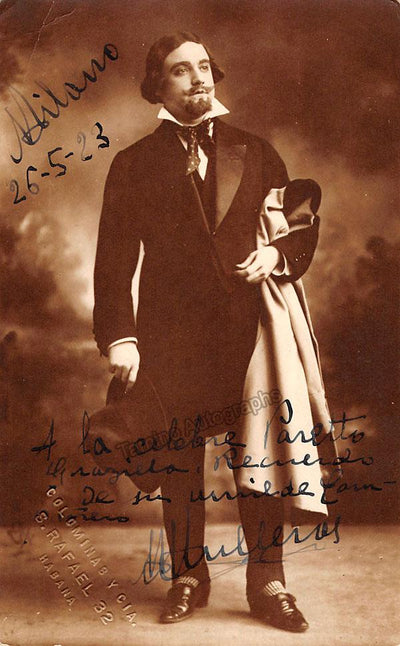 Milano
26-5-23
A la celebre Paretto
Graziela, Recuerdo
De su umilde Com-
pañero
Tamino Autographs
COLOMINAS Y CIA.
S. RAFAEL 32
HABANA.